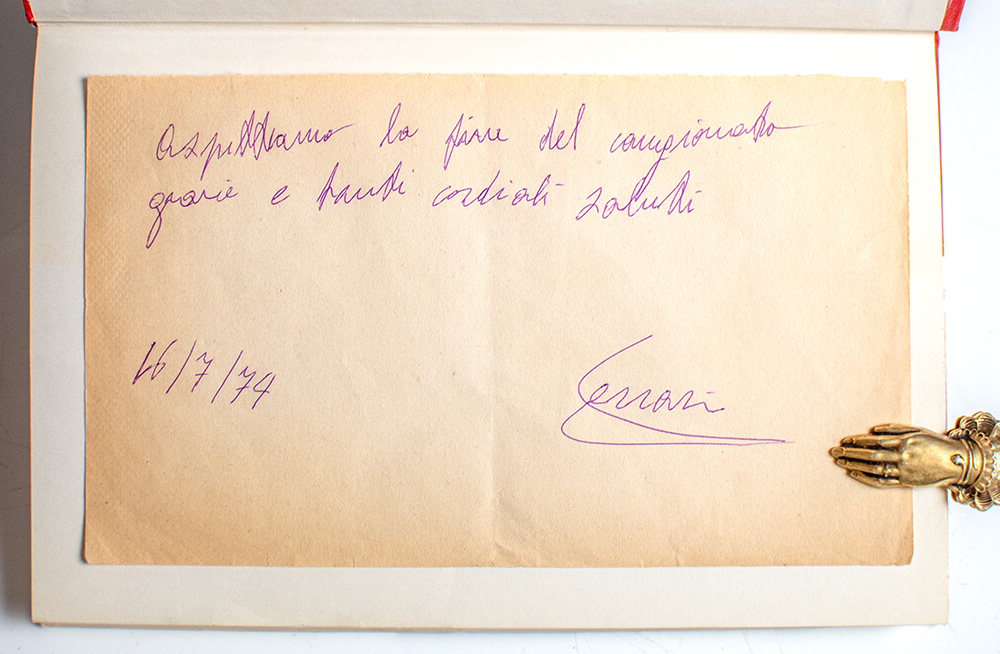 Aspettiamo la fine del campionato
grazie e tanti cordiali saluti
16/7/74
Ferrari